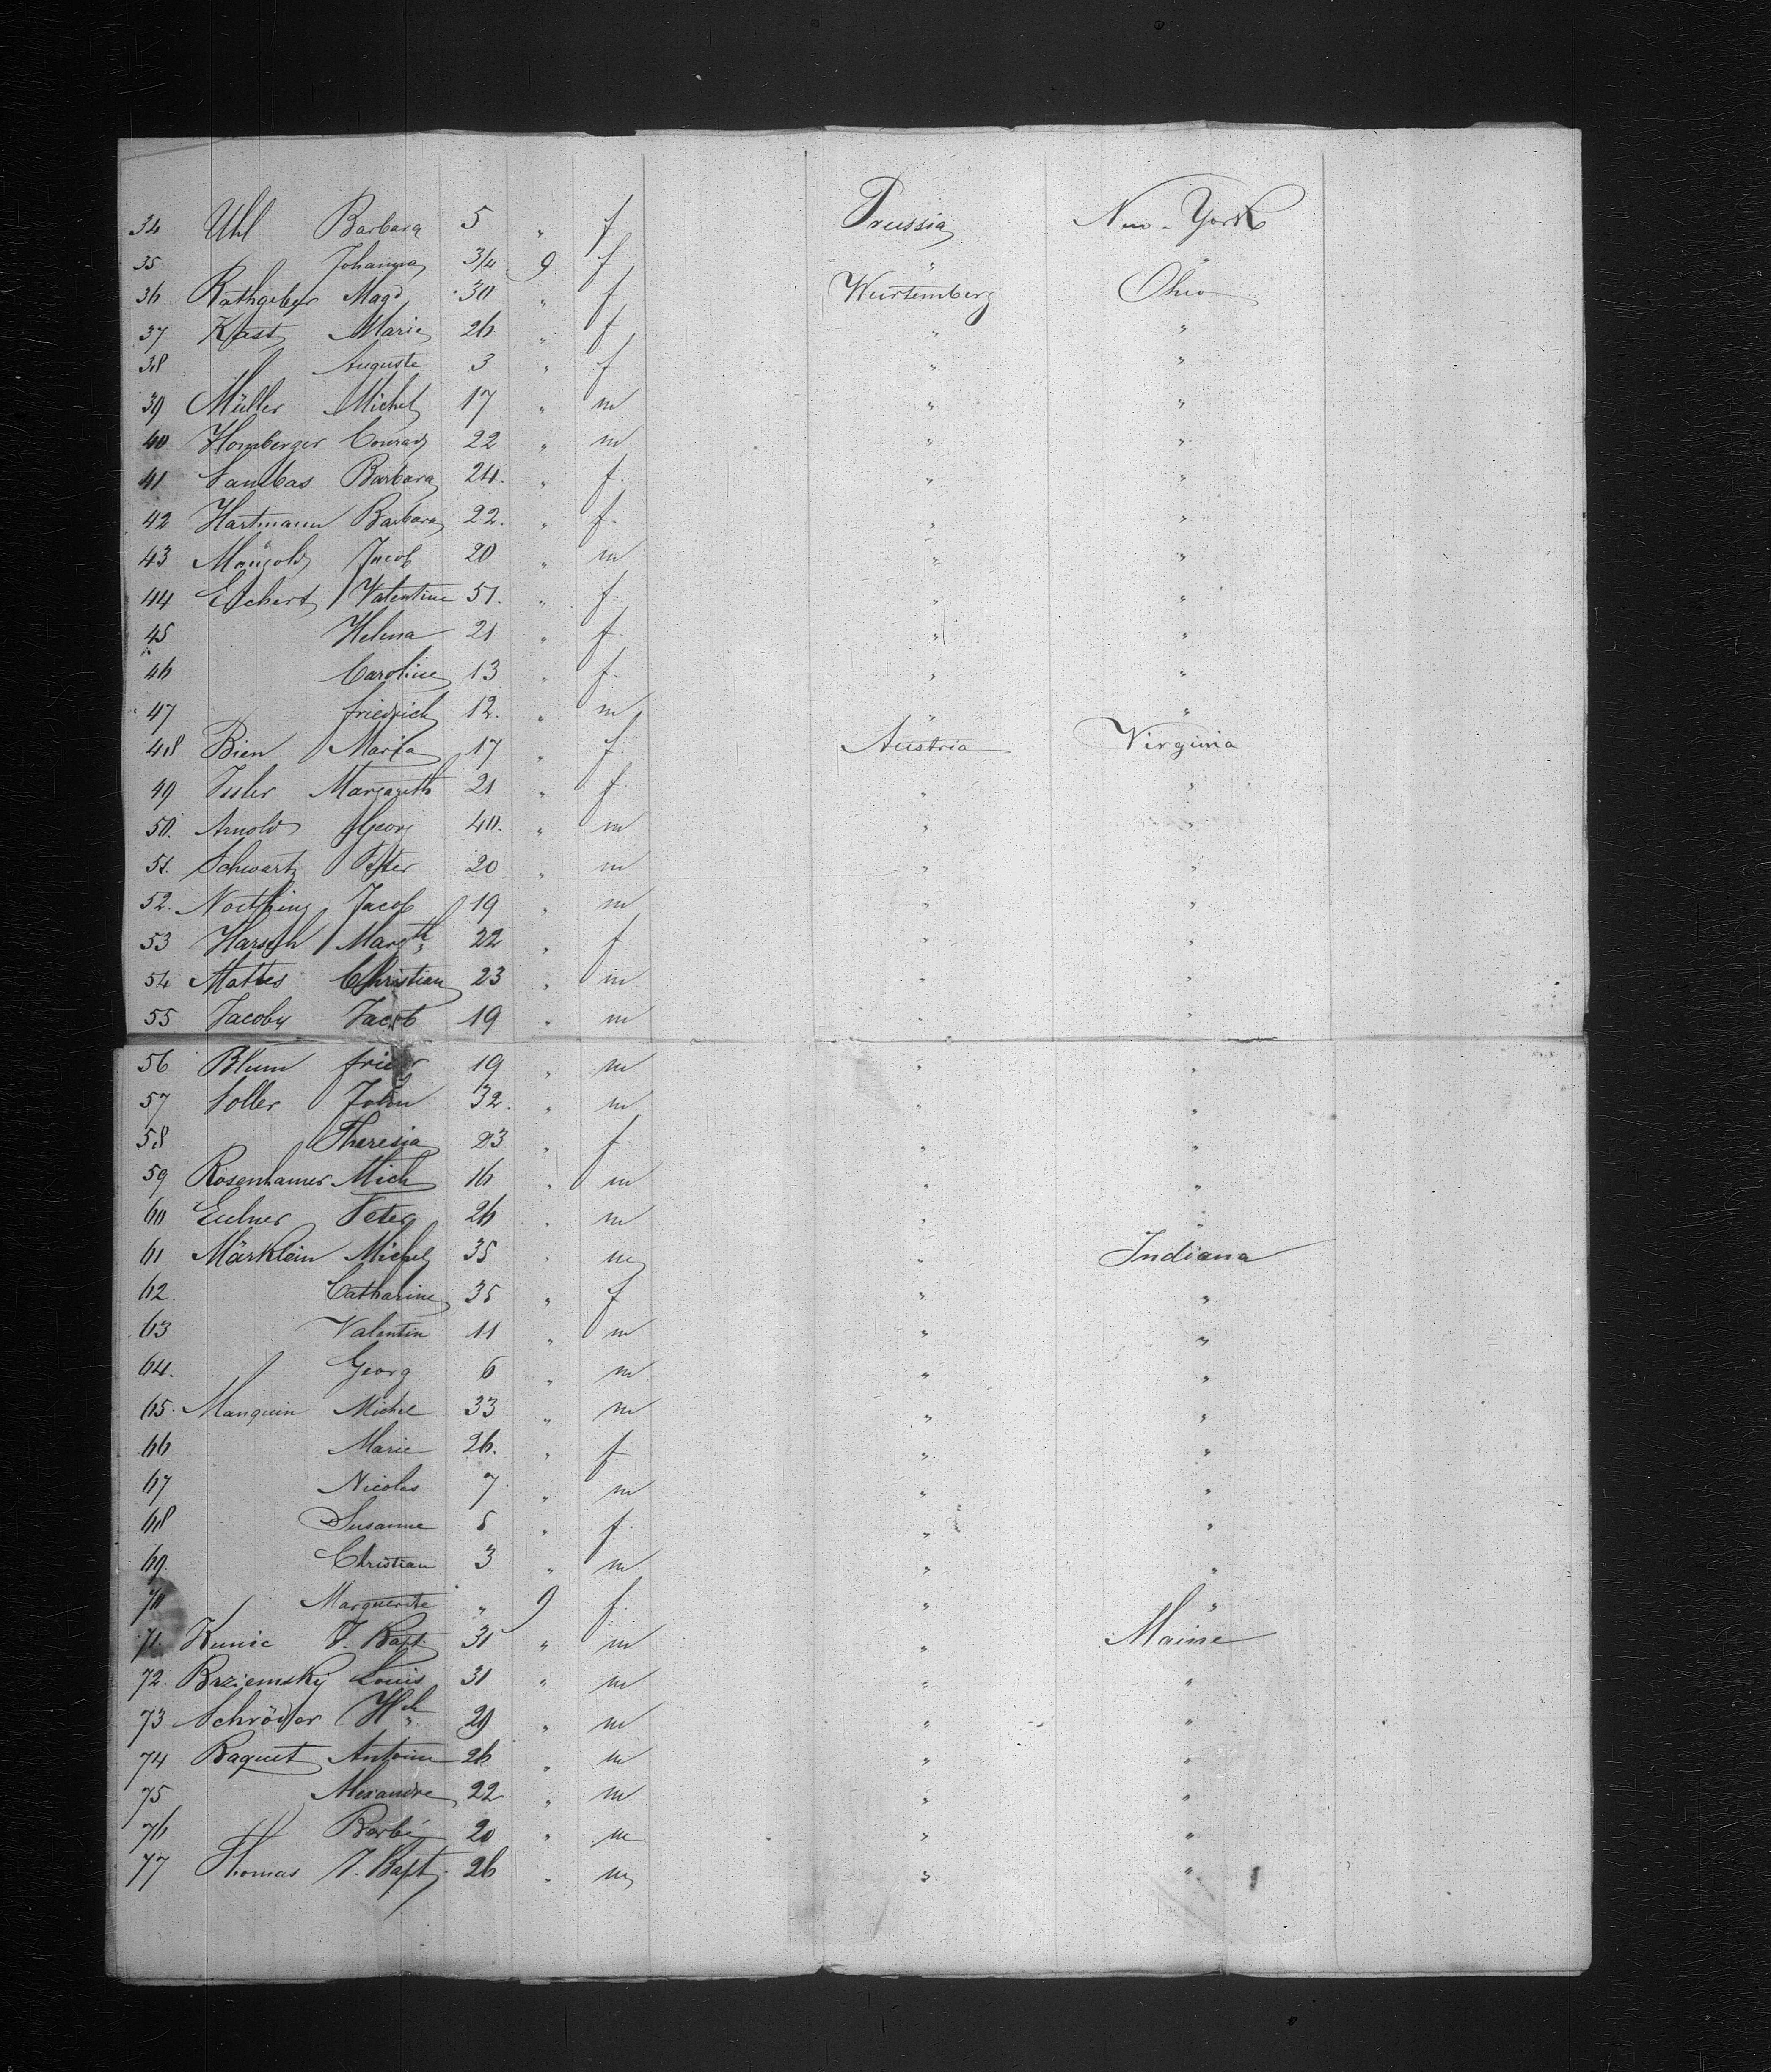 34 Uhl Barbara 5 " f Prussia New-York
35 Johanna 3/4 9 f " "
36 Rathgeber Magd. 30 " f Wurtemberg Ohio
37 Kast Marie 26 " f " "
38 Auguste 3 " f " "
39 Müller Michel 17 " m " "
40 Homberger Conrad 22 " m " "
41 Barbara 24. " f. " "
42 Hartmann Barbara 22. " f. " "
43 Mangold Jacob 20 " m " "
44 Eschert Valentine 51. " f. " "
45 Helena 21 " f. " "
46 Caroline 13 " f. " "
47 friedrich 12. " m " "
48 Bien Maria 17 " f. Austria Virginia
49 Issler Margareth 21 " f. " "
50. Arnold Georg 40. " m " "
51. Schwartz Peter 20 " m " "
52. Jacob 19 " m " "
53 Harsch Margth 22 " f " "
54 Mattes Christian 23 " m " "
55 Jacoby Jacob 19 " m " "
56 Blum frieder 19 " m " "
57 Soller John 32. " m " "
58 Theresia 23 " f " "
59 Rosenhamer Mich 16 " m " "
60 Eulner Peter 26 " m " "
61 Märklein Michel 35 " m " Indiana
62. Catharine 35 " f " "
63 Valentin 11 " m " "
64. Georg 6 " m " "
65. Manquin Michel 33 " m " "
66 Marie 26. " f " "
67 Nicolas 7 " m " "
68 Susanne 5 " f. " "
69. Christian 3 " m " "
70 Marguerite " 9 f. " "
71. Kunie J. Bapt. 31 " m " Maine
72. Brziemsky Louis 31 " m " "
73 Schröder Hch 29 " m " "
74 Baquet Antoine 26 " m " "
75 Alexandre 22 " m " "
76 Barbé 20 " m " "
77 Thomas J. Bapt. 26 " m " "